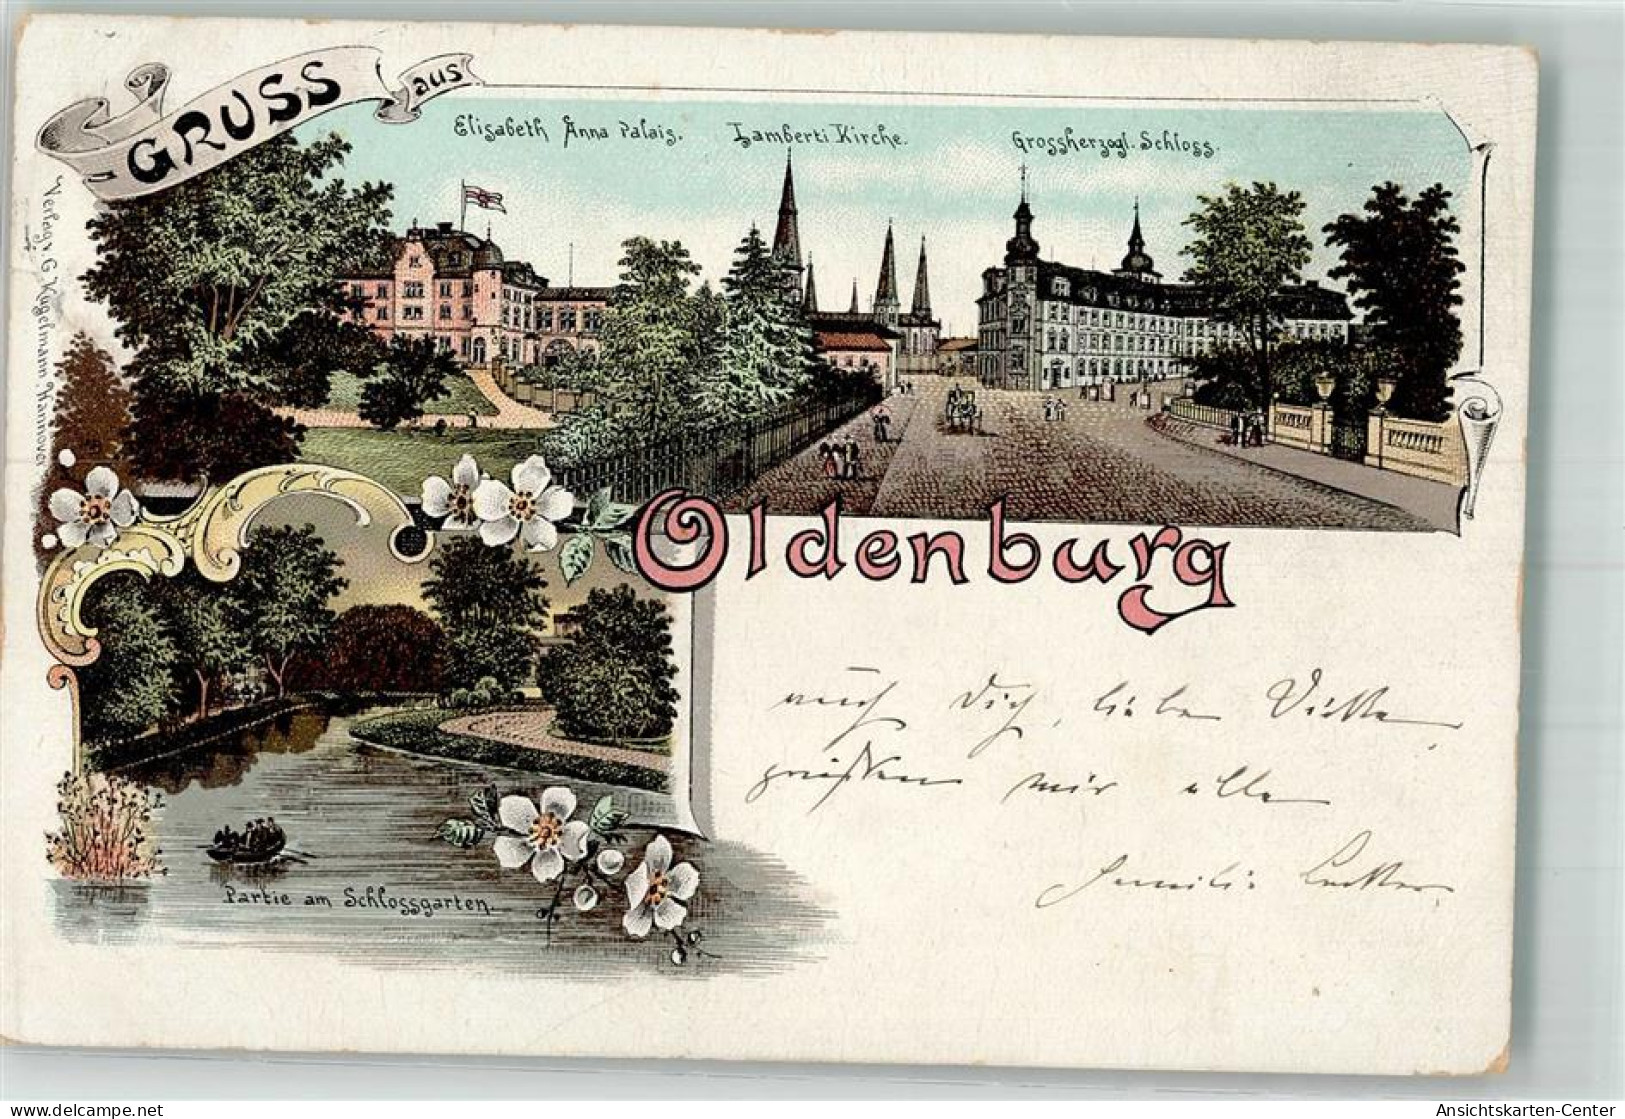 GRUSS aus
Elisabeth Anna Palais.
Lamberti Kirche.
Grossherzogl. Schloss.
Verlag v. G. Kugelmann, Hannover
Oldenburg
auch Dich, liebe
grüßen wir alle
Familie
Partie am Schlossgarten.
www.delcampe.net
Ansichtskarten-Center